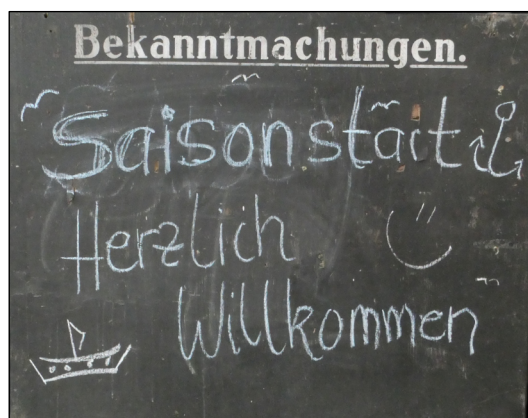 Bekanntmachungen.
Saisonstart
Herzlich
Willkommen